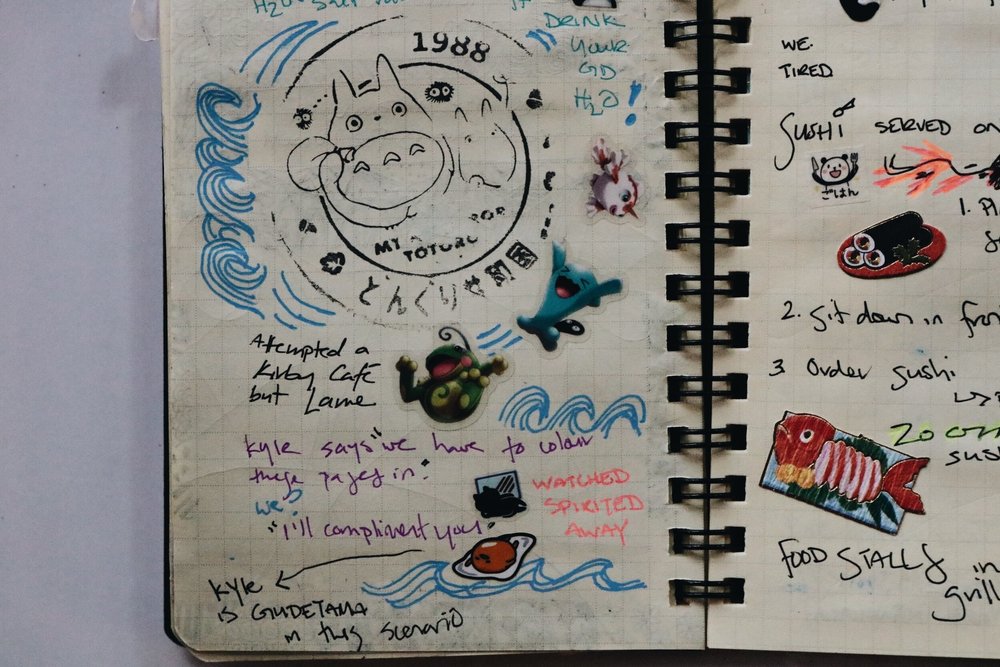 H2O
DRINK
Your
GD
H2O!
1988
MY
TOTORO
どんぐり
Attempted a
Kirby Café
but Lame
Kyle says "we have to colour
these pages in."
we?
"I'll compliment you"
WATCHED
SPIRITED
AWAY
KYLE
IS GUDETAMA
in this scenario
WE
TIRED
SUSHI SERVED ON
ごはん
1. Pl
2. Sit down in fron
3 Order sushi
sus
FOOD STALLS
in
grill